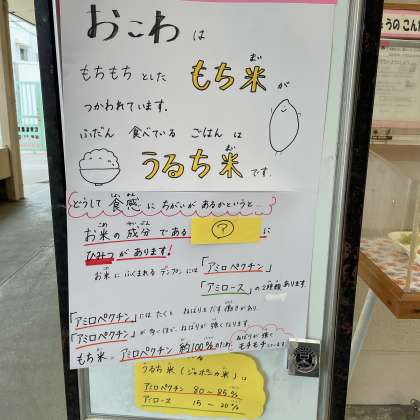 おこわ は
もちもち とした もち米 が
つかわれています。
ふだん 食べている ごはん は
うるち米 です。
どうして 食感 に ちがいが あるかというと…
お米の成分である ? に
ひみつがあります!
お米に ふくまれる デンプンには 「アミロペクチン」
「アミロース」の2種類 あります。
「アミロペクチン」には たくと ねばりをだす 働きがあり、
「アミロペクチン」が 多いほど、ねばりが 強くなります。
もち米 = アミロペクチン 約100%のため ねばりが 強く
モチモチしています
うるち米(ジャポニカ米)は
アミロペクチン 80〜85%
アミロース 15〜20%